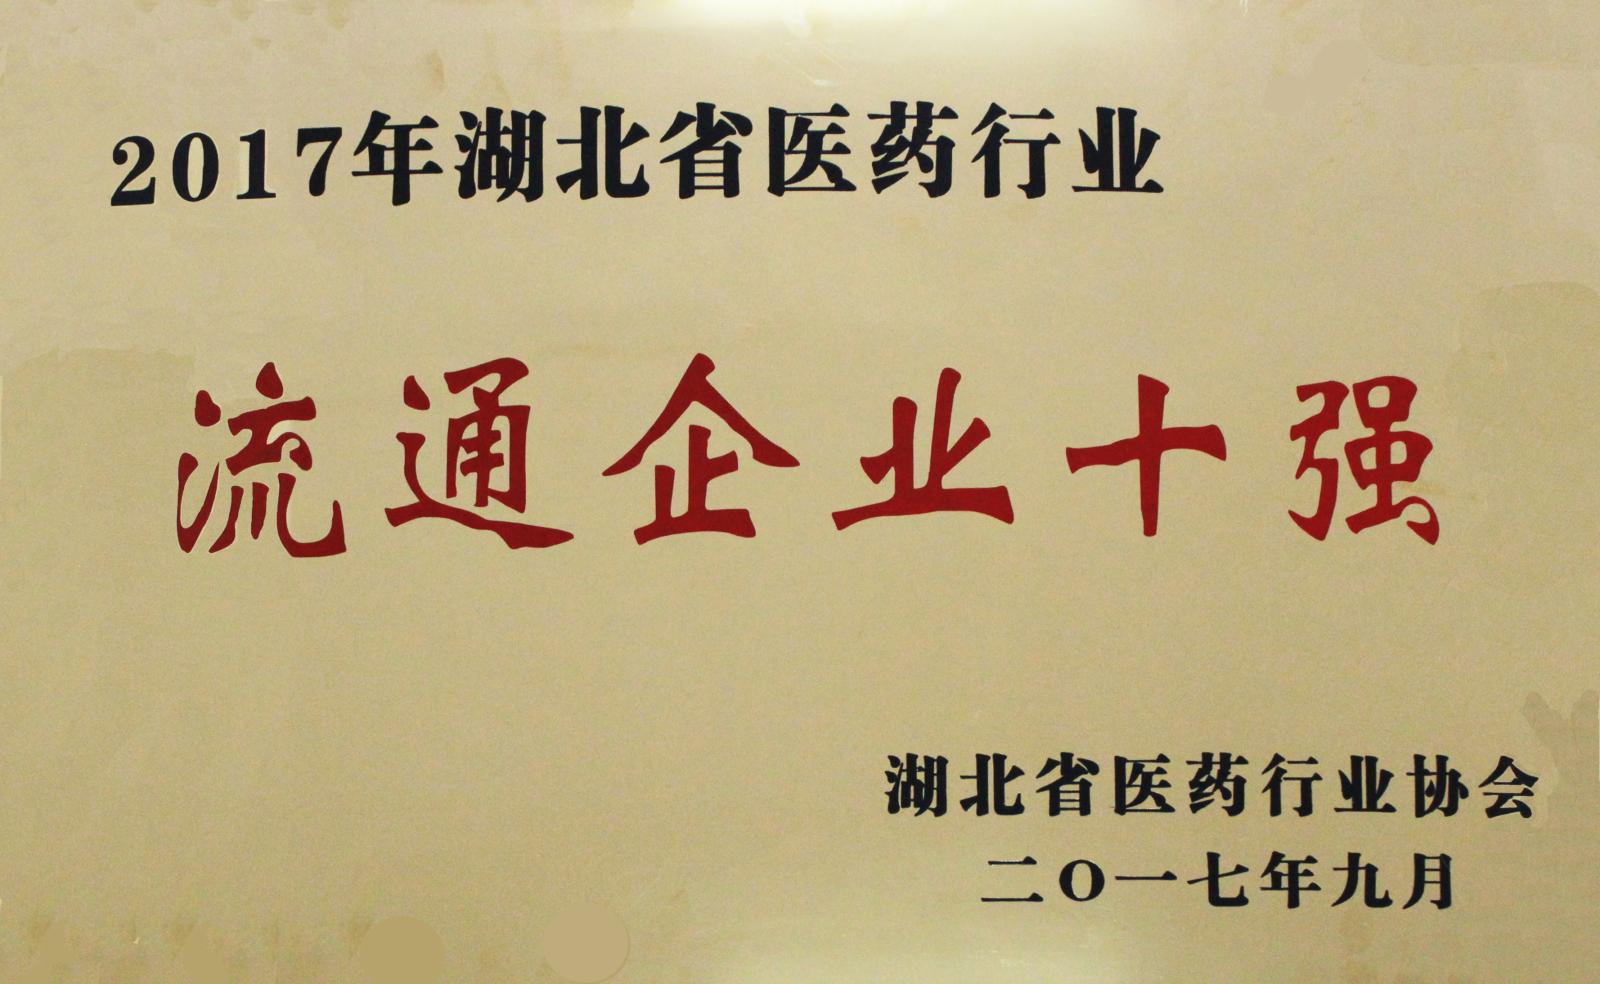 2017年湖北省医药行业
流通企业十强
湖北省医药行业协会
二〇一七年九月